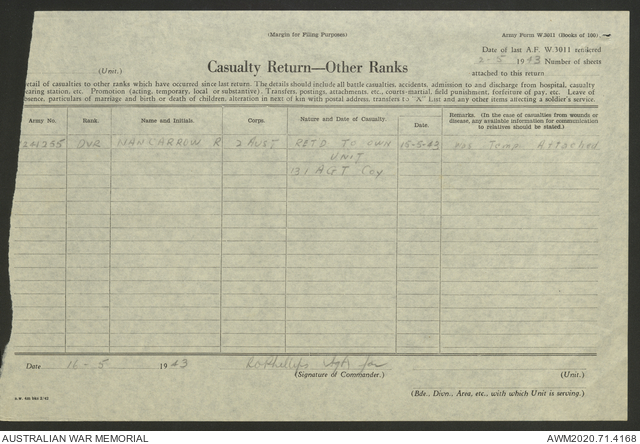 (Margin for Filing Purposes)
Army Form W.3011 (Books of 100)
Date of last A.F. W.3011 rendered
2-5 1943 Number of sheets
attached to this return
(Unit.)
Casualty Return—Other Ranks
etail of casualties to other ranks which have occurred since last return. The details should include all battle casualties, accidents, admission to and discharge from hospital, casualty
earing station, etc. Promotion (acting, temporary, local or substantive). Transfers, postings, attachments, etc., courts-martial, field punishment, forfeiture of pay, etc. Leave of
bsence, particulars of marriage and birth or death of children, alteration in next of kin with postal address, transfers to "A" List and any other items affecting a soldier's service.
Army No. Rank. Name and Initials. Corps. Nature and Date of Casualty. Date. Remarks. (In the case of casualties from wounds or
disease, any available information for communication
to relatives should be stated.)
DVR NANCARROW R 2 AUST RETD TO OWN 15-5-43 Temp Attached
UNIT
131 AGT Coy
Date 16-5 1943
(Signature of Commander.) (Unit.)
(Bde., Divn., Area, etc., with which Unit is serving.)
AUSTRALIAN WAR MEMORIAL AWM2020.71.4168